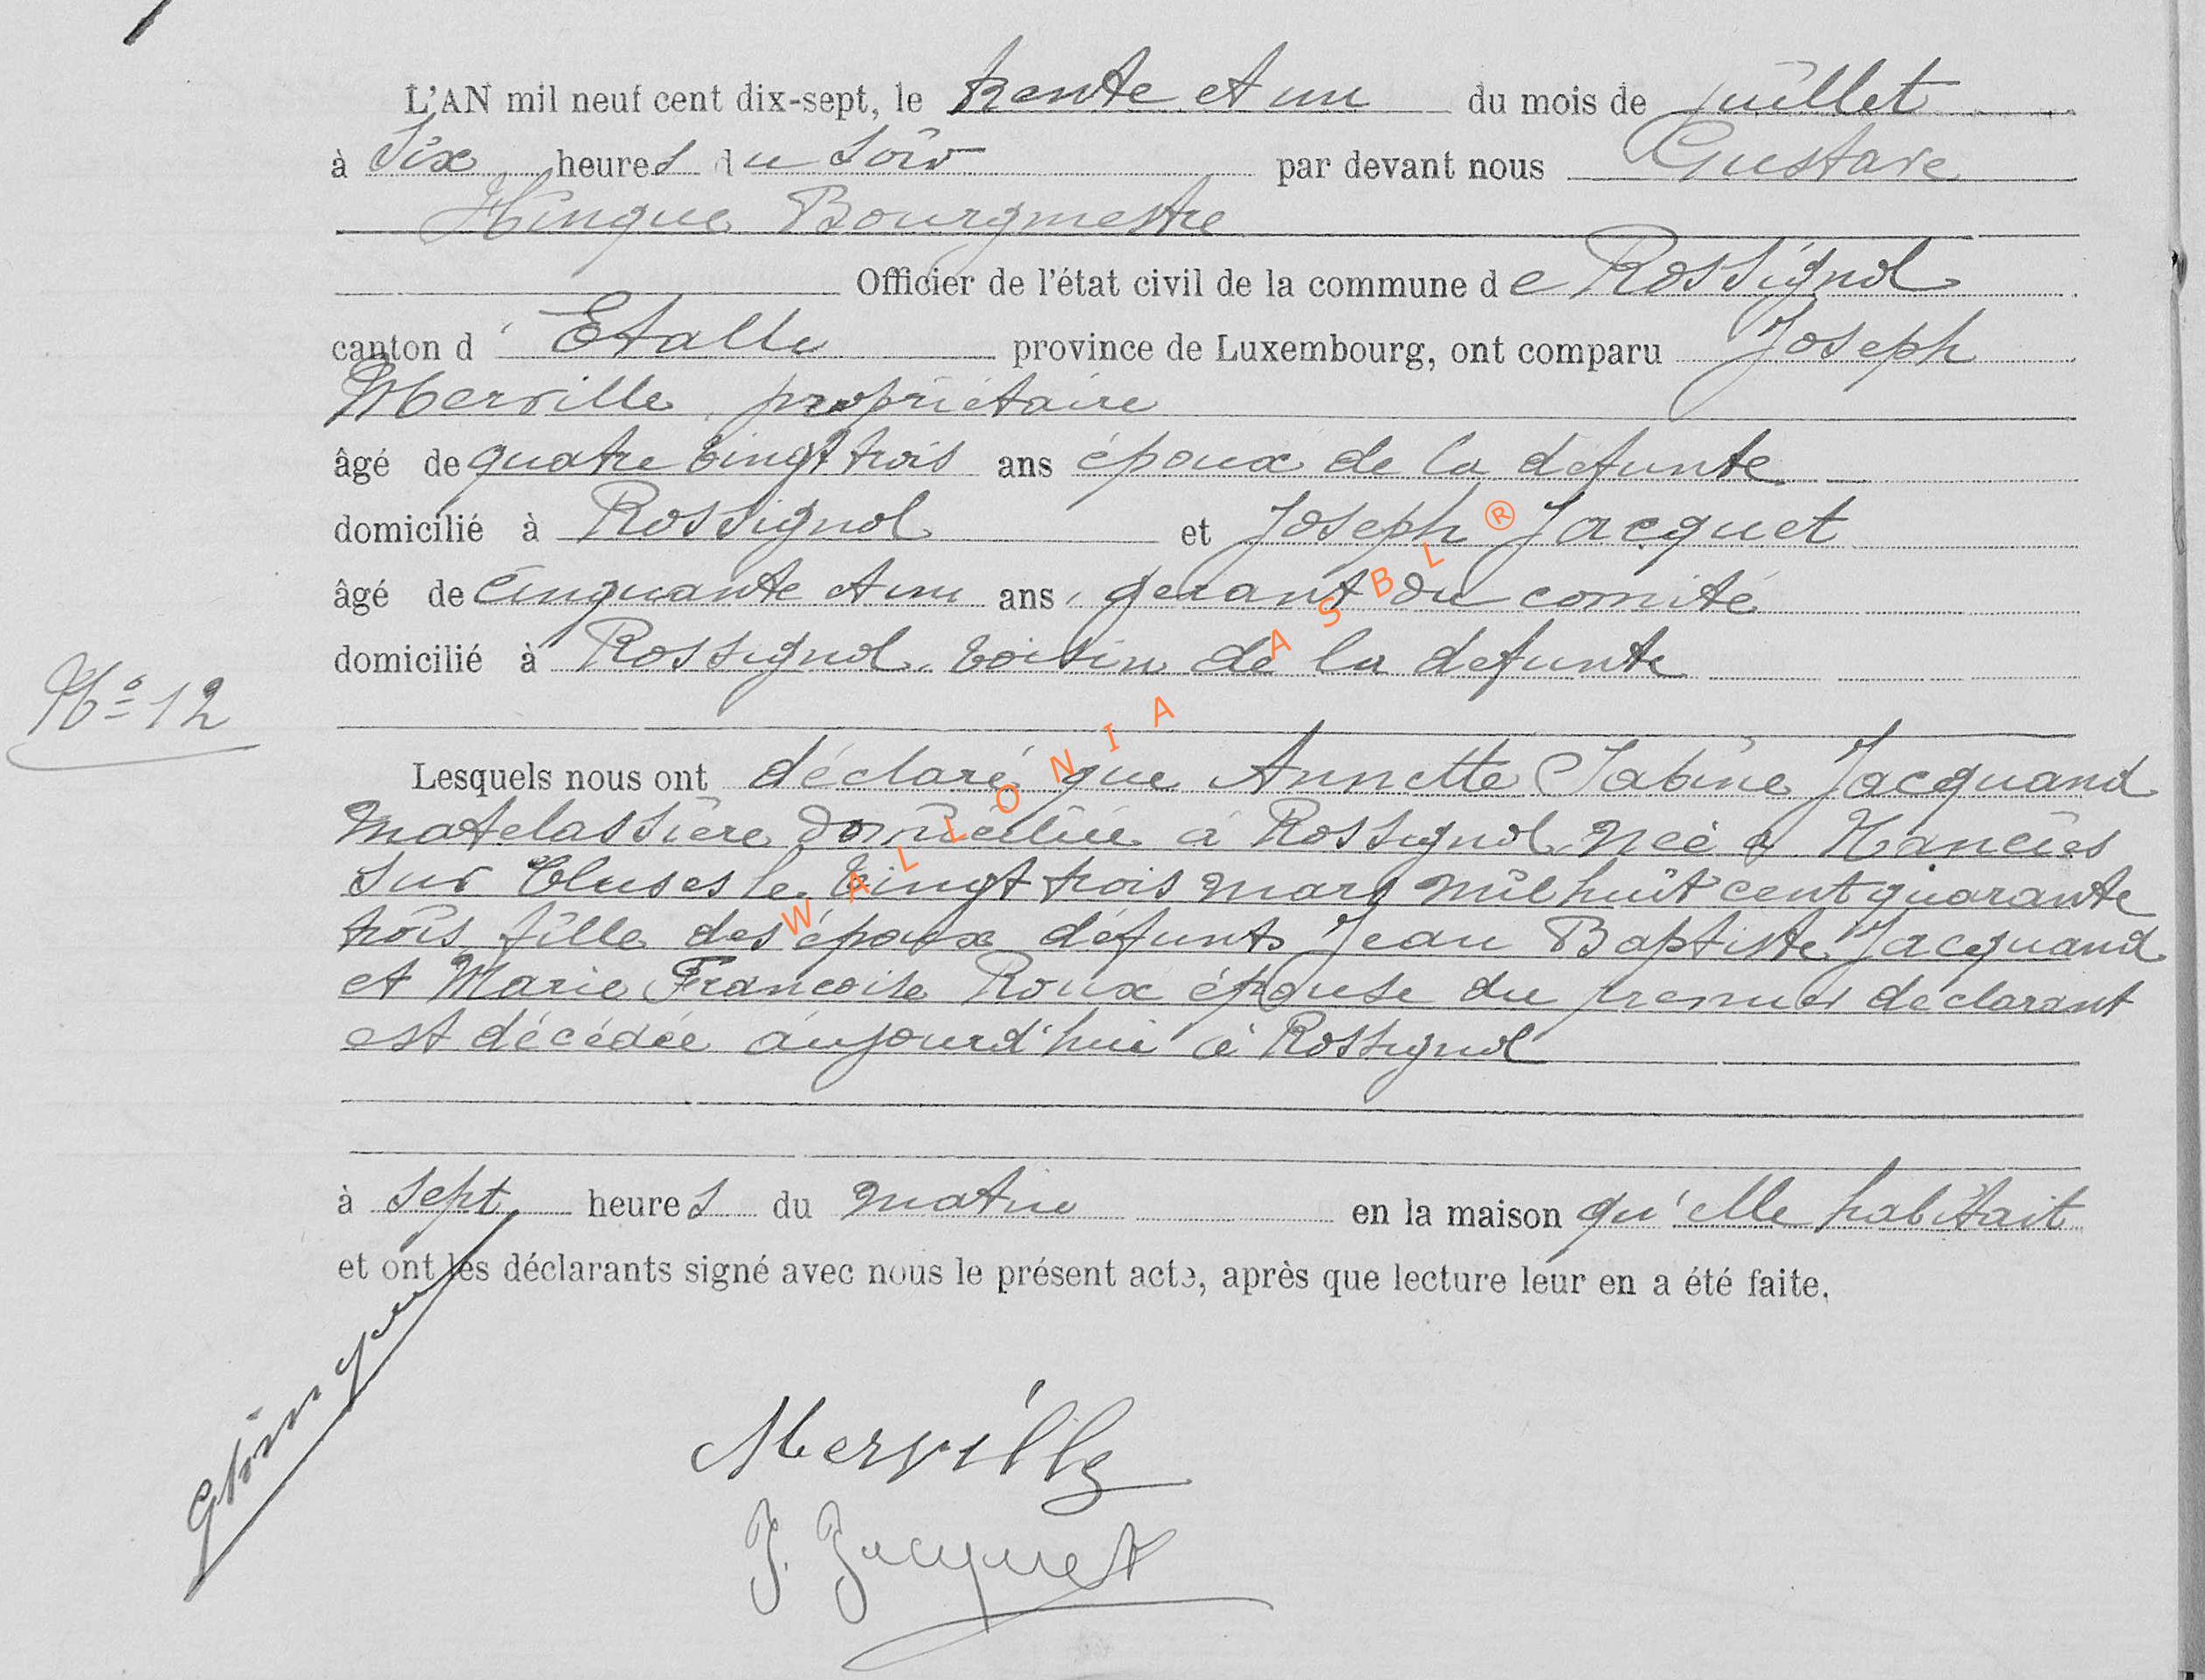 L'AN mil neuf cent dix-sept, le trente et un du mois de juillet
à Six heures du Soir par devant nous Gustave
Hinque Bourgmestre
Officier de l'état civil de la commune de Rossignol
canton d'Etalle province de Luxembourg, ont comparu Joseph
Merville propriétaire
âgé de quatre vingt trois ans époux de la defunte
domicilié à Rossignol et Joseph Jacquet
âgé de cinquante et un ans, gerant du comité
domicilié à Rossignol voisin de la defunte
No 12
Lesquels nous ont déclaré que Annette Sabine Jacquand
matelassière domiciliée à Rossignol née à Nancies
sur Cluses le vingt trois mars mil huit cent quarante
trois fille des époux défunts Jean Baptiste Jacquand
et Marie Francoise Roux épouse du premier déclarant
est décédée aujourd'hui à Rossignol
à sept heures du matin en la maison qu'elle habitait
et ont les déclarants signé avec nous le présent acte, après que lecture leur en a été faite.
GHinque
Merville
J. Jacquet
WALLONIA ASBL ®